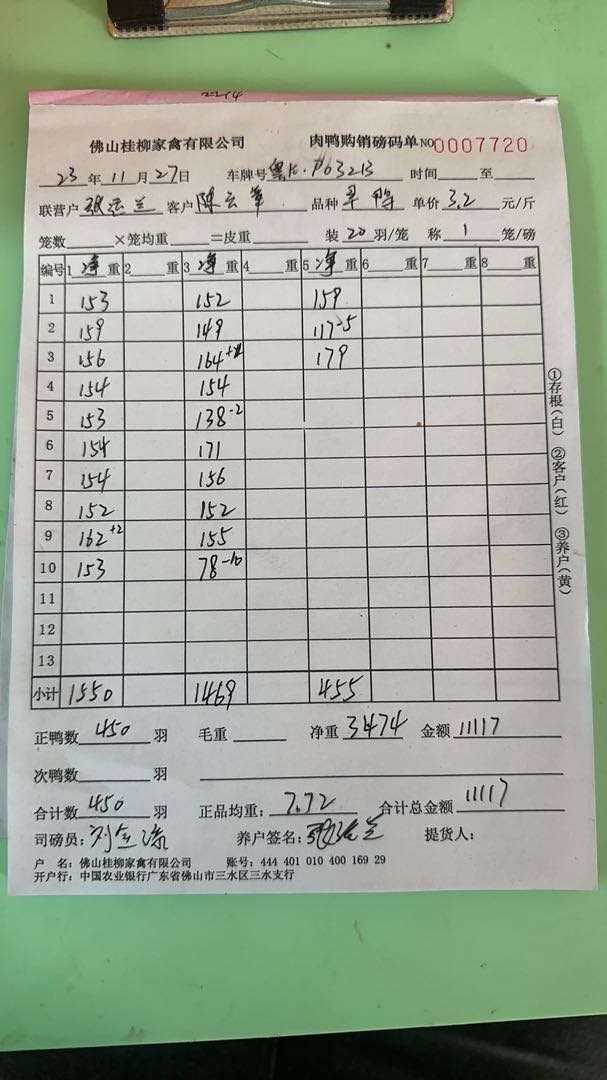 佛山桂柳家禽有限公司 肉鸭购销磅码单 NO 0007720
23 年 11 月 27 日 车牌号 P03213 时间 至
联营户 客户 陈云 品种 鸭 单价 3.2 元/斤
笼数 ×笼均重 =皮重 装 20 羽/笼 称 1 笼/磅
编号 1 净 重 2 重 3 净 重 4 重 5 净 重 6 重 7 重 8 重
1 153 152 159
2 159 149 117-5
3 156 164 179
4 154 154
5 153 138-2
6 154 171
7 154 156
8 152 152
9 162+2 155
10 153 78-10
11
12
13
小计 1550 1469 455
①存根(白) ②客户(红) ③养户(黄)
正鸭数 450 羽 毛重 净重 3474 金额 11117
次鸭数 羽
合计数 450 羽 正品均重: 7.72 合计总金额 11117
司磅员: 养户签名: 提货人:
户 名: 佛山桂柳家禽有限公司 账号: 444 401 010 400 169 29
开户行: 中国农业银行广东省佛山市三水区三水支行